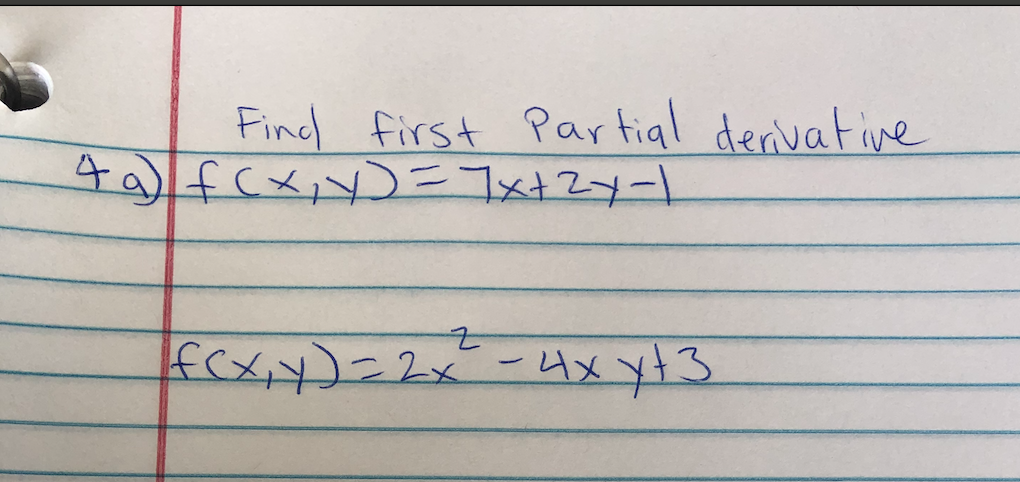 Find first Partial derivative
4a) f(x,y)=7x+2y-1
f(x,y)=2x²-4xy+3